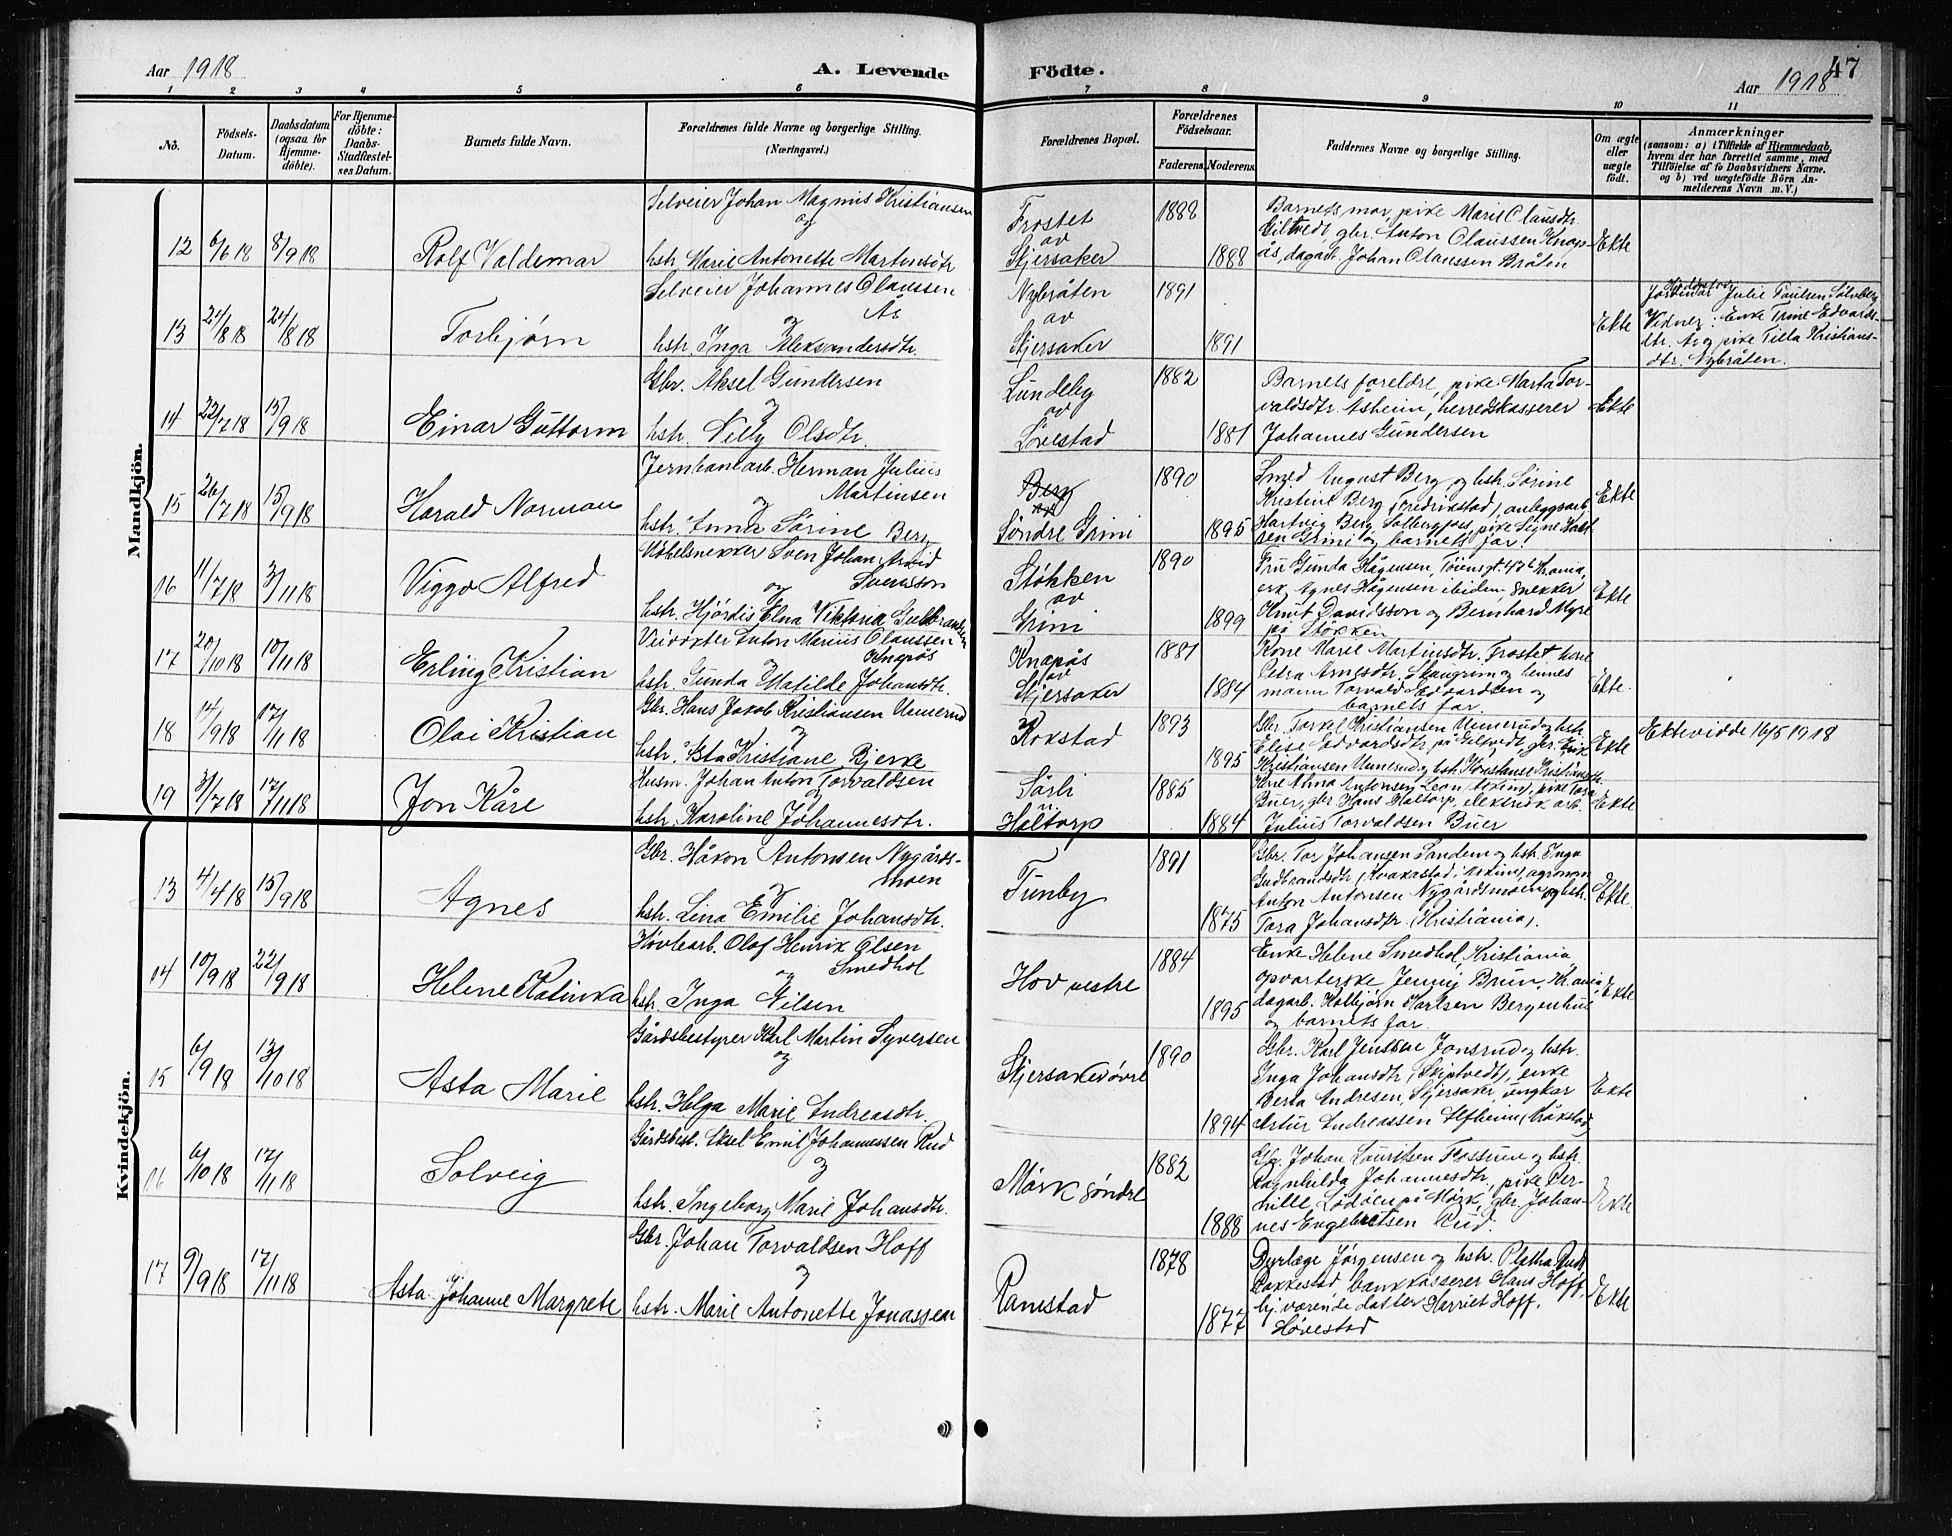 Aar 1918 A. Levende Födte. Aar 1918 47
1 2 3 4 5 6 7 8 9 10 11
No.
Födsels-
Datum.
Daabsdatum
(ogsaa for
Hjemme-
döbte).
For Hjemme-
döbte:
Daabs-
Stadfæstel-
ses Datum.
Barnets fulde Navn.
Forældrenes fulde Navne og borgerlige Stilling.
(Næringsvei.)
Forældrenes Bopæl.
Forældrenes
Födselsaar.
Faderens. Moderens.
Faddernes Navne og borgerlige Stilling.
Om ægte
eller
uægte
födt.
Anmærkninger
(saasom: a) i Tilfælde af Hjemmedaab,
hvem der har forrettet samme, med
Tilföielse af to Daabsvidners Navne,
og b) ved uægtefödte Börn An-
melderens Navn m. V.)
Mandkjön.
12 6/6 18 8/9 18 Rolf Valdemar
Selveier Johan Magnus Kristiansen
og
hstr. Marie Antonette Martinsdtr
Frostet
av
Skjersaker
1888
1888
Barnets mor, pike Marie Clausdtr.
Giltvedt, gbr. Anton Olaussen Knap-
ås, dagarb. Johan Olaussen Bråten
Ekte
13 24/8 18 24/8 18 Torbjørn
Selveier Johannes Olaussen
Ås
og
hstr. Inga Aleksandersdtr.
Nybråten
av
Skjersaker
1891
1891
Ekte
Jordmor Julie Paulsen Sølvberg
Vidner: Enke Trine Edvards-
dtr. Ås og pike Tilla Kristians-
dtr. Nybråten.
14 22/7 18 15/9 18 Einar Guttorm
Gbr. Aksel Gundersen
og
hstr. Nelly Olsdtr.
Lundeby
av
Løvestad
1882
1881
Barnets foreldre, pike Marta Tor-
valdsdtr. Åsheim, herredskasserer
Johannes Gundersen
Ekte
15 26/7 18 15/9 18 Harald Norman
Jernbanearb. Herman Julius
Martinsen
og
hstr. Anna Sørine Berg
Berg
av
Søndre Grini
1890
1895
Smed August Berg og hstr. Sørine
Kristine Berg (Fredrikstad), anleggsarb.
Hartvig Berg Solbergfoss, pike Signe
Grini og barnets far.
Ekte
16 11/7 18 3/11 18 Viggo Alfred
Møbelsnekker Sven Johan Arvid
Svensson
og
hstr. Hjørdis Elna Viktoria Gulbrandsen
Støkken
av
Grini
1890
1899
Fru Gunda Hågensen, Tøiensgt. Kr.ania,
Agnes Hågensen ibiden, snekker
Knut Davidsson og Bernhard Myre
på Støkken
Ekte
17 20/10 18 10/11 18 Erling Kristian
Veivokter Anton Marius Olaussen
Knapås
og
hstr. Gunda Matilde Johansdtr.
Knapås
av
Skjersaker
1881
1884
Kone Marie Martinsdtr. Frostet, kone
Petra Arnesdtr. Skaugrim og hennes
mann Torvald Edvardsen og
barnets far.
Ekte.
18 14/9 18 17/11 18 Olai Kristian
Gbr. Hans Jakob Kristiansen Unnerud
og
hstr. Åsta Kristiane Bjerke
Kokstad
1893
1895
Gbr. Torkel Kristiansen Unnerud og hstr.
Elise Edvardsdtr. på Giltvedt, gbr. Erik
Kristiansen Unnerud og hstr. Konstanse Kristiansdtr.
Ekte
Ektevidde 16/5 1918
19 3/7 18 17/11 18 Jon Kåre
Husm. Johan Anton Torvaldsen
og
hstr. Karoline Johannesdtr.
Sørli
u.
Haltorp
1885
1884
Kone Anna Antonsen Leon (Askim), pike Tora
Buer, gbr. Hans Haltorp, elektrisk arb.
Julius Torvaldsen Buer
Ekte
Kvindekjön.
13 4/4 18 15/9 18 Agnes
Gbr. Håkon Antonsen Nygårds-
moen
og
hstr. Lina Emilie Johansdtr.
Tunby
1891
1875
Gbr. Tor Johansen Sandem og hstr. Inga
Gudbrandsdtr. (Kvakestad i Askim), agronom
Anton Antonsen Nygårdsmoen og hstr.
Tora Johansdtr. (Kristiania).
Ekte
14 10/9 18 22/9 18 Helene Katinka
Høvlearb. Olaf Henrik Olsen
Smedhol
og
hstr. Inga Nilsen
Hov vestre
1884
1895
Enke Helene Smedhol, Kristiania
opvarterske Jenny Brun, Kr.ania,
dagarb. Kolbjørn Karlsen Bergenhus
og barnets far
Ekte
15 6/9 18 13/10 18 Asta Marie
Gårdsbestyrer Karl Martin Syversen
og
hstr. Helga Marie Andreasdtr.
Skjersaker øvre
1890
1894
Gbr. Karl Jensen Jonsrud og hstr.
Inga Johansdtr. (Skiptvedt), enke
Berta Andresen, Skjersaker, ungkar
Artur Andreassen Alfheim (Kråkstad)
Ekte
16 6/10 18 17/11 18 Solveig
Gårdsbest. Aksel Emil Johannessen Rud
og
hstr. Ingeborg Marie Johansdtr.
Mørk søndre
1882
1888
Gbr. Johan Lauritsen Fossum og hstr.
Ragnhilda Johannesdtr., pike Per-
nille Lødøen på Mørk, gbr. Johan-
nes Engebretsen Rud.
Ekte
17 9/9 18 17/11 18 Asta Johanne Margrete
Gbr. Johan Torvaldsen Hoff
og
hstr. Marie Antonette Jonassen
Ramstad
1878
1877
Dyrlæge Jørgensen og hstr.
Rakkestad, bankkasserer Hans Hoff,
hj.værende datter Harriet Hoff.
Løvestad
Ekte